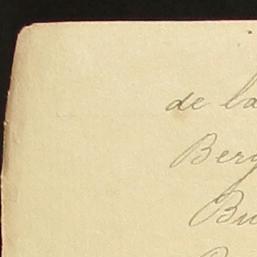 de la
Berg
Bu